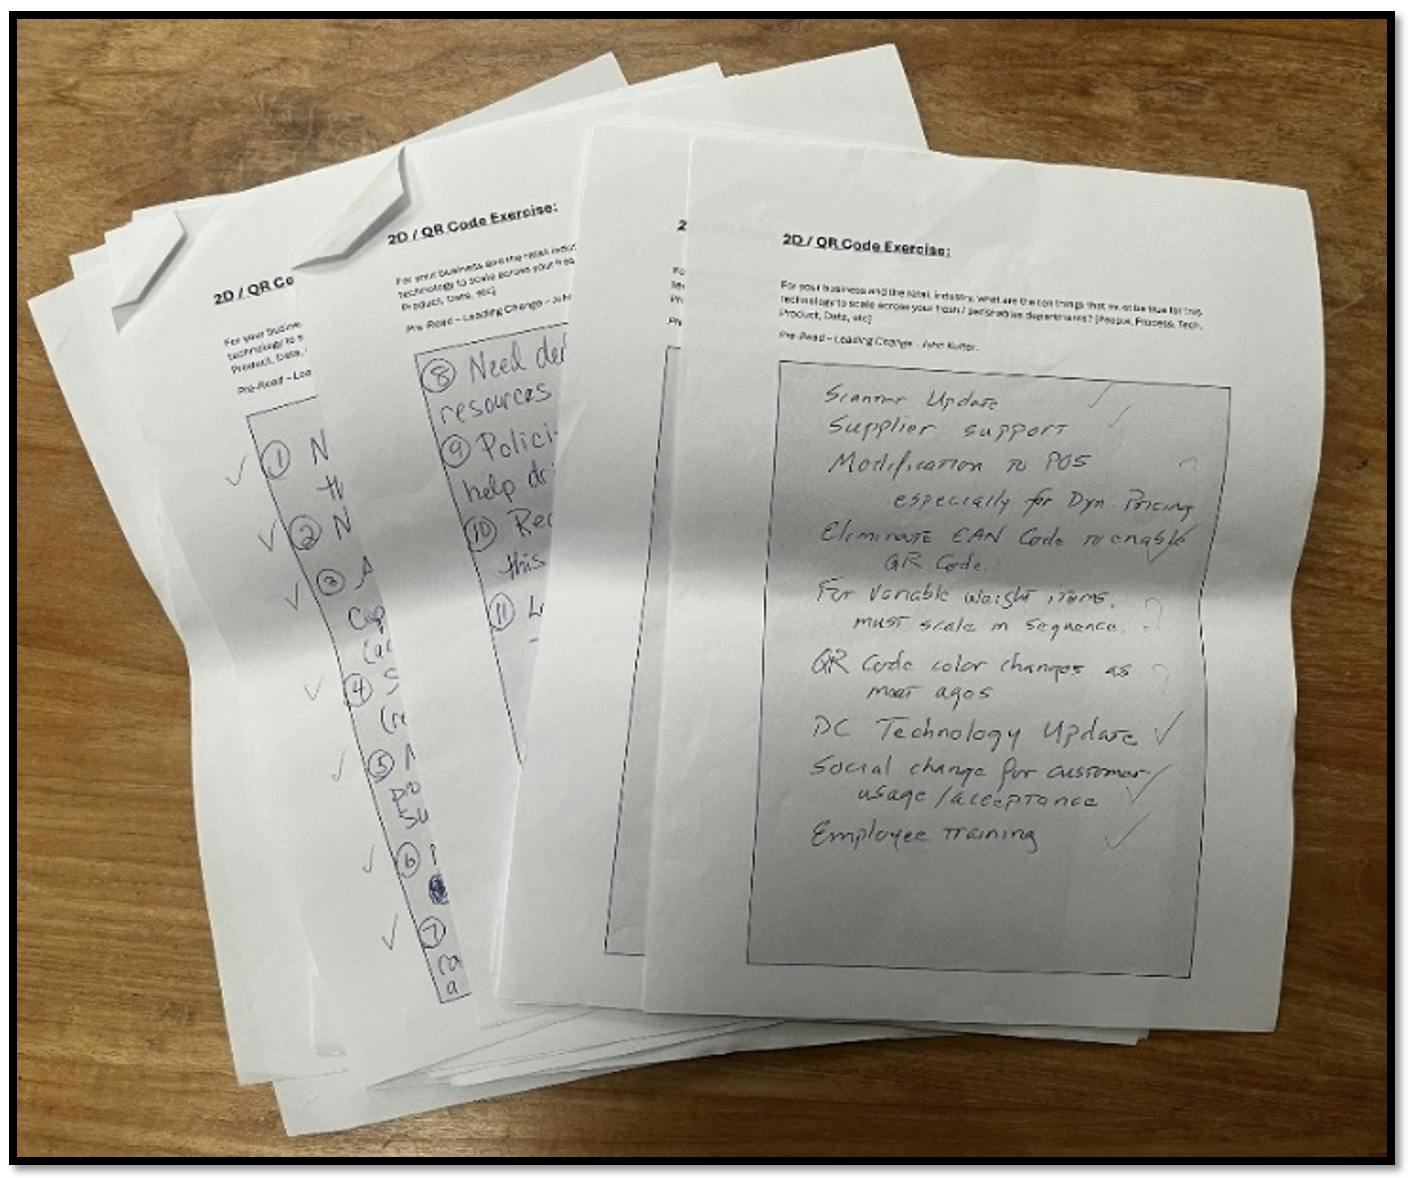 2D / QR Co
For your busine
technology to s
Product, Data,
Pre-Read – Lea
① N
th
② N
③ A
Cap
(ac
④
(re
⑤ A
⑥
⑦
Ca
a
2D / QR Code Exercise:
For your business and the retail indus
technology to scale across your fres
Product, Data, etc]
Pre-Read – Leading Change – John
⑧ Need de
resources
⑨ Polici
help dr
⑩ Rec
this
⑪ L
2
Fo
tec
Pro
Pre
2D / QR Code Exercise:
For your business and the retail industry, what are the ten things that must be true for this
technology to scale across your fresh / perishables departments? [People, Process, Tech,
Product, Data, etc]
Pre-Read – Leading Change - John Kotter.
Scanner Update
Supplier support
Modification to POS
especially for Dyn. Pricing
Eliminate EAN Code to enable
QR Code.
For variable weight items,
must scale in sequence.
QR Code color changes as
meat ages
DC Technology Update
Social change for customer
usage/acceptance
Employee training